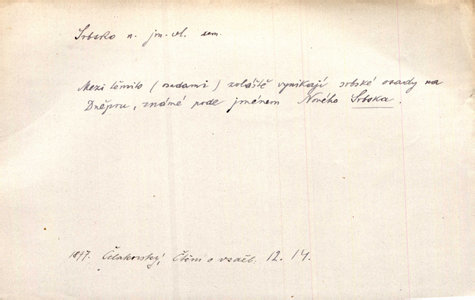 Srbsko n. jm. vl. zem.
Mezi těmito (osadami) zvláště vynikají srbské osady na
Dněpru, známé pode jménem Nového Srbska.
1877. Čelakovský, Čtení o vzděl. 12. 14.